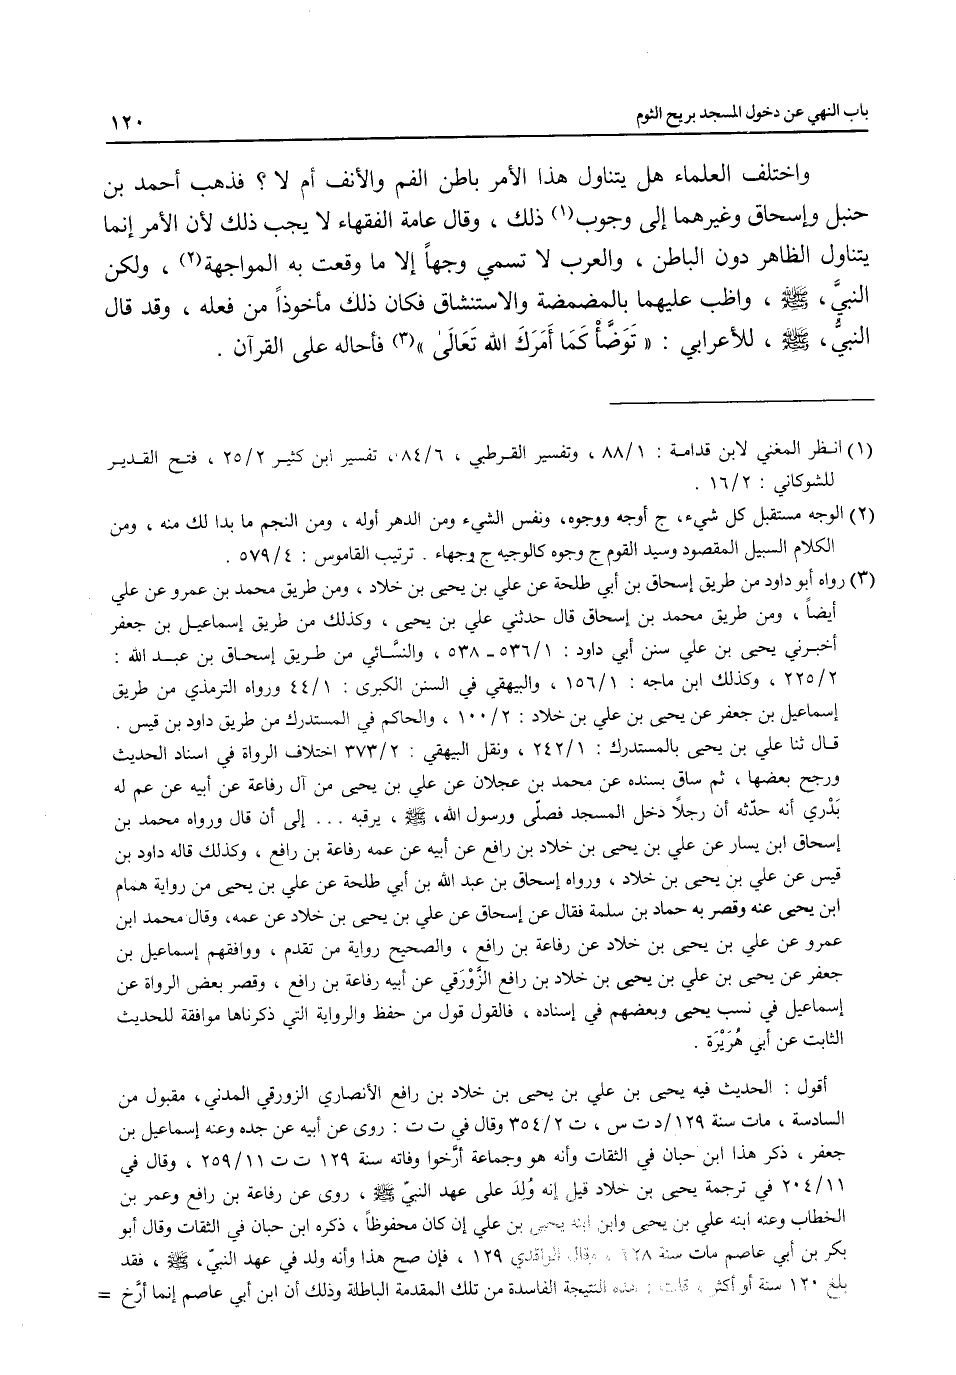 باب النهي عن دخول المسجد بريح الثوم
١٢٠
واختلف العلماء هل يتناول هذا الأمر باطن الفم والأنف أم لا ؟ فذهب أحمد بن
حنبل وإسحاق وغيرهما إلى وجوب(١) ذلك ، وقال عامة الفقهاء لا يجب ذلك لأن الأمر إنما
يتناول الظاهر دون الباطن ، والعرب لا تسمي وجهاً إلا ما وقعت به المواجهة(٢) ، ولكن
النبيَّ ، ﷺ ، واظب عليهما بالمضمضة والاستنشاق فكان ذلك مأخوذاً من فعله ، وقد قال
النبيُّ ، ﷺ ، للأعرابي : « تَوَضَّأْ كَمَا أَمَرَكَ الله تَعَالَىٰ »(٣) فأحاله على القرآن .
(١) انظر المغني لابن قدامة : ٨٨/١ ، وتفسير القرطبي ، ٨٤/٦ ، تفسير ابن كثير ٢٥/٢ ، فتح القدير
للشوكاني : ١٦/٢ .
(٢) الوجه مستقبل كل شيء، ج أوجه ووجوه، ونفس الشيء ومن الدهر أوله ، ومن النجم ما بدا لك منه ، ومن
الكلام السبيل المقصود وسيد القوم ج وجوه كالوجيه ج وجهاء . ترتيب القاموس : ٥٧٩/٤ .
(٣) رواه أبو داود من طريق إسحاق بن أبي طلحة عن علي بن يحيى بن خلاد ، ومن طريق محمد بن عمرو عن علي
أيضاً ، ومن طريق محمد بن إسحاق قال حدثني علي بن يحيى ، وكذلك من طريق إسماعيل بن جعفر
أخبرني يحيى بن علي سنن أبي داود : ٥٣٦/١ - ٥٣٨ ، والنَّسائي من طريق إسحاق بن عبد الله :
٢٢٥/٢ ، وكذلك ابن ماجه : ١٥٦/١ ، والبيهقي في السنن الكبرى : ٤٤/١ ورواه الترمذي من طريق
إسماعيل بن جعفر عن يحيى بن علي بن خلاد : ١٠٠/٢ ، والحاكم في المستدرك من طريق داود بن قيس .
قال ثنا علي بن يحيى بالمستدرك : ٢٤٢/١ ، ونقل البيهقي : ٣٧٣/٢ اختلاف الرواة في اسناد الحديث
ورجح بعضها ، ثم ساق بسنده عن محمد بن عجلان عن علي بن يحيى من آل رفاعة عن أبيه عن عم له
بَدْري أنه حدّثه أن رجلاً دخل المسجد فصلّى ورسول الله، ﷺ ، يرقبه ... إلى أن قال ورواه محمد بن
إسحاق ابن يسار عن علي بن يحيى بن خلاد بن رافع عن أبيه عن عمه رفاعة بن رافع ، وكذلك قاله داود بن
قيس عن علي بن يحيى بن خلاد ، ورواه إسحاق بن عبد الله بن أبي طلحة عن علي بن يحيى من رواية همام
ابن يحيى عنه وقصر به حماد بن سلمة فقال عن إسحاق عن علي بن يحيى بن خلاد عن عمه، وقال محمد ابن
عمرو عن علي بن يحيى بن خلاد عن رفاعة بن رافع ، والصحيح رواية من تقدم ، ووافقهم إسماعيل بن
جعفر عن يحيى بن علي بن يحيى بن خلاد بن رافع الزَّوْرَقي عن أبيه رفاعة بن رافع ، وقصر بعض الرواة عن
إسماعيل في نسب يحيى وبعضهم في إسناده ، فالقول قول من حفظ والرواية التي ذكرناها موافقة للحديث
الثابت عن أبي هُرَيْرَة .
أقول : الحديث فيه يحيى بن علي بن يحيى بن خلاد بن رافع الأنصاري الزورقي المدني، مقبول من
السادسة ، مات سنة ١٢٩/ د ت س ، ت ٣٥٤/٢ وقال في ت ت : روى عن أبيه عن جده وعنه إسماعيل بن
جعفر ، ذكر هذا ابن حبان في الثقات وأنه هو وجماعة أرَّخوا وفاته سنة ١٢٩ ت ت ٢٥٩/١١ ، وقال في
٢٠٤/١١ في ترجمة يحيى بن خلاد قيل إنه وُلِدَ على عهد النبيّ ﷺ ، روى عن رفاعة بن رافع وعمر بن
الخطاب وعنه ابنه علي بن يحيى وابن ابنه يحيى بن علي إن كان محفوظاً ، ذكره ابن حبان في الثقات وقال أبو
بكر بن أبي عاصم مات سنة ١٢٨ ، وقال الواقدي ١٢٩ ، فإن صح هذا وأنه ولد في عهد النبيّ، ﷺ ، فقد
بلغ ١٢٠ سنة أو أكثر ، قلت : هذه النتيجة الفاسدة من تلك المقدمة الباطلة وذلك أن ابن أبي عاصم إنما أرَّخ =